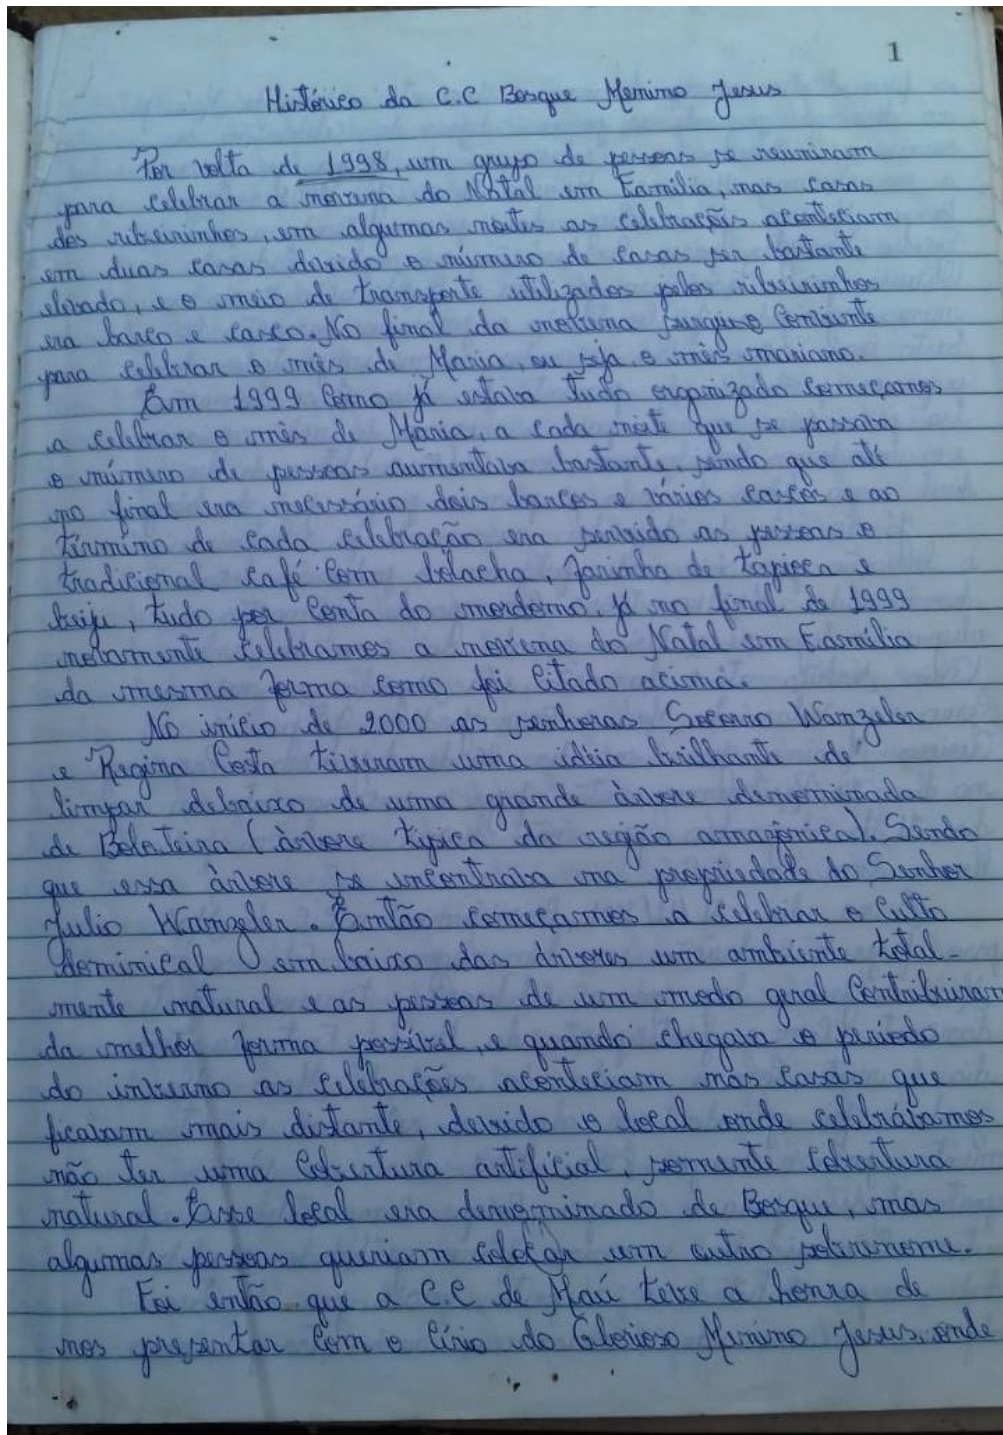 1
Histórico da C.C Bosque Menino Jesus
Por volta de 1998, um grupo de pessoas se reuniram
para celebrar a novena do Natal em Família, nas casas
dos ribeirinhos, em algumas noites as celebrações aconteciam
em duas casas devido o número de casas ser bastante
elevado, e o meio de transporte utilizados pelos ribeirinhos
era barco e casco. No final da novena surgiu o convite
para celebrar o mês de Maria, ou seja, o mês mariano.
Em 1999 como já estava tudo organizado começamos
a celebrar o mês de Maria, a cada noite que se passava
o número de pessoas aumentava bastante, sendo que até
no final era necessário dois barcos e vários cascos e ao
término de cada celebração era servido as pessoas o
tradicional café com bolacha, farinha de tapioca e
beiju, tudo por conta do mordomo. Já no final de 1999
novamente celebramos a novena do Natal em Família
da mesma forma como foi citado acima.
No início de 2000 as senhoras Socorro Wanzeler
e Regina Costa tiveram uma idéia brilhante de
limpar debaixo de uma grande àrvore denominada
de Boloteira (àrvore típica da região amazônica). Sendo
que essa àrvore se encontrava na propriedade do Senhor
Julio Wanzeler. Então começamos a celebrar o culto
dominical em baixo das árvores um ambiente total-
mente natural e as pessoas de um modo geral contribuiram
da melhor forma possível, e quando chegava o período
do inverno as celebrações aconteciam nas casas que
ficavam mais distante, devido o local onde celebrávamos
não ter uma cobertura artificial, somente cobertura
natural. Esse local era denominado de Bosque, mas
algumas pessoas queriam colocar um outro sobrenome.
Foi então que a C.C de Maú teve a honra de
nos presentar com o Círio do Glorioso Menino Jesus, onde